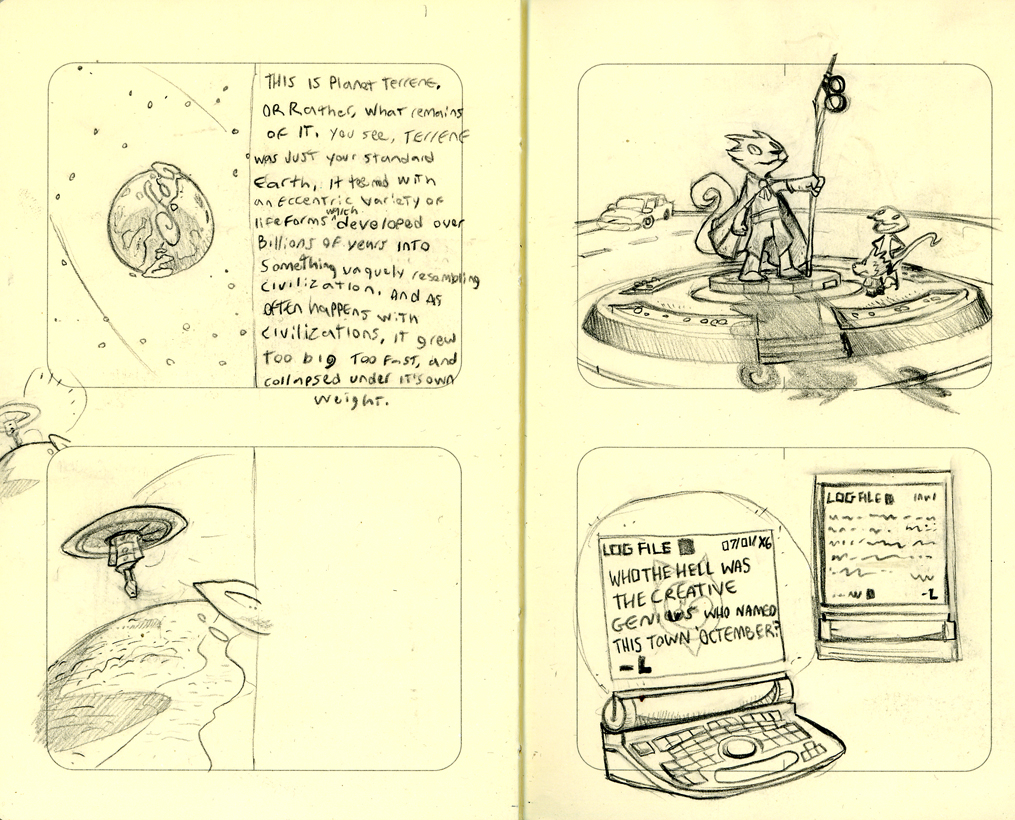 THIS IS Planet Terrene,
OR Rather, what remains
OF IT. You see, Terrene
was Just your standard
Earth, it teemed with
an Eccentric variety of
lifeforms which developed over
Billions of years INTO
Something vaguely resembling
civilization. And AS
OFTEN happens with
civilizations, it grew
too big TOO Fast, and
collapsed under it's own
weight.
LOG FILE 07/01/X6
WHO THE HELL WAS
THE CREATIVE
GENIUS WHO NAMED
THIS TOWN 'OCTEMBER?
-L
LOG FILE
-L